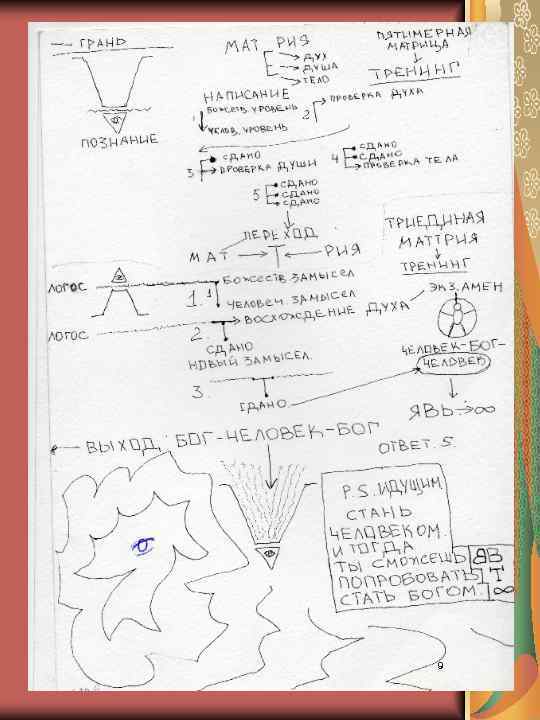 ГРАНЬ
ПОЗНАНИЕ
МАТ РИЯ
ДУХ
ДУША
ТЕЛО
ПЯТИМЕРНАЯ
МАТРИЦА
ТРЕНИНГ
НАПИСАНИЕ
БОЖЕСТВ. УРОВЕНЬ
ЧЕЛОВ. УРОВЕНЬ
2 ПРОВЕРКА ДУХА
3 СДАНО
ПРОВЕРКА ДУШИ
4 СДАНО
СДАНО
ПРОВЕРКА ТЕЛА
5 СДАНО
СДАНО
СДАНО
ПЕРЕХОД
МАТ Т РИЯ
ТРИЕДИНАЯ
МАТТРИЯ
ТРЕНИНГ
ЭКЗАМЕН
ЛОГОС
ЛОГОС
1. БОЖЕСТВ. ЗАМЫСЕЛ
1 ЧЕЛОВЕЧ. ЗАМЫСЕЛ
2. ВОСХОЖДЕНИЕ ДУХА
СДАНО
НОВЫЙ ЗАМЫСЕЛ.
3.
СДАНО
ЧЕЛОВЕК-БОГ-
ЧЕЛОВЕК
ЯВЬ → ∞
ВЫХОД, БОГ-ЧЕЛОВЕК-БОГ
ОТВЕТ. 5.
P.S. ИДУЩИМ.
СТАНЬ
ЧЕЛОВЕКОМ.
И ТОГДА
ТЫ СМОЖЕШЬ ЯВ
ПОПРОБОВАТЬ Т
СТАТЬ БОГОМ. ∞
9